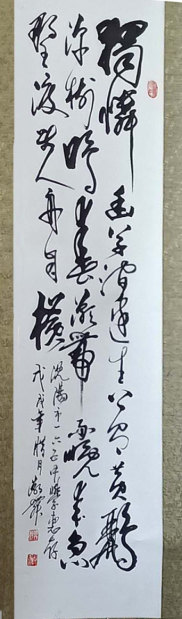 獨憐幽草澗邊生上有黃鸝
深樹鳴春潮帶雨晚來急
野渡無人舟自橫
沈陽市一六五中
戊戌年腊月